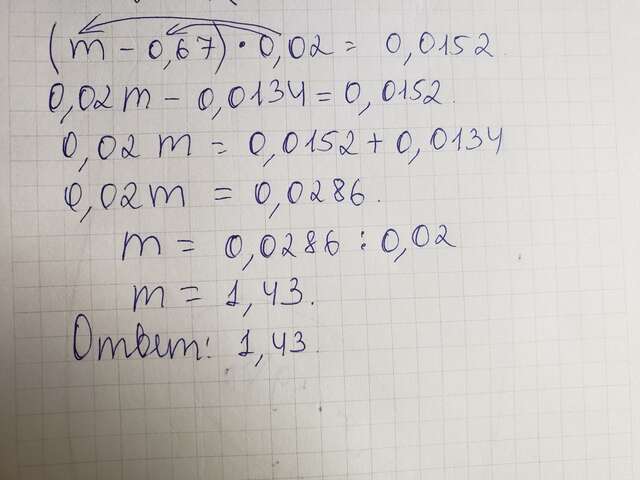 (m - 0,67) · 0,02 = 0,0152
0,02m - 0,0134 = 0,0152.
0,02 m = 0,0152 + 0,0134
0,02m = 0,0286.
m = 0,0286 : 0,02
m = 1,43.
Ответ: 1,43.